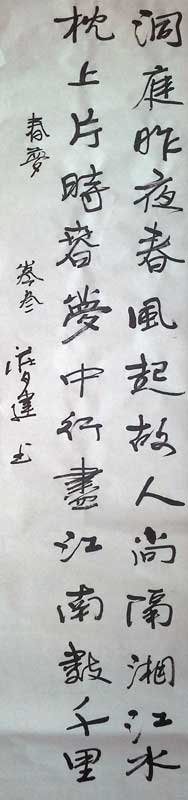 洞庭昨夜春風起故人尚隔湘江水
枕上片時春夢中行盡江南數千里
春夢 岑參 建